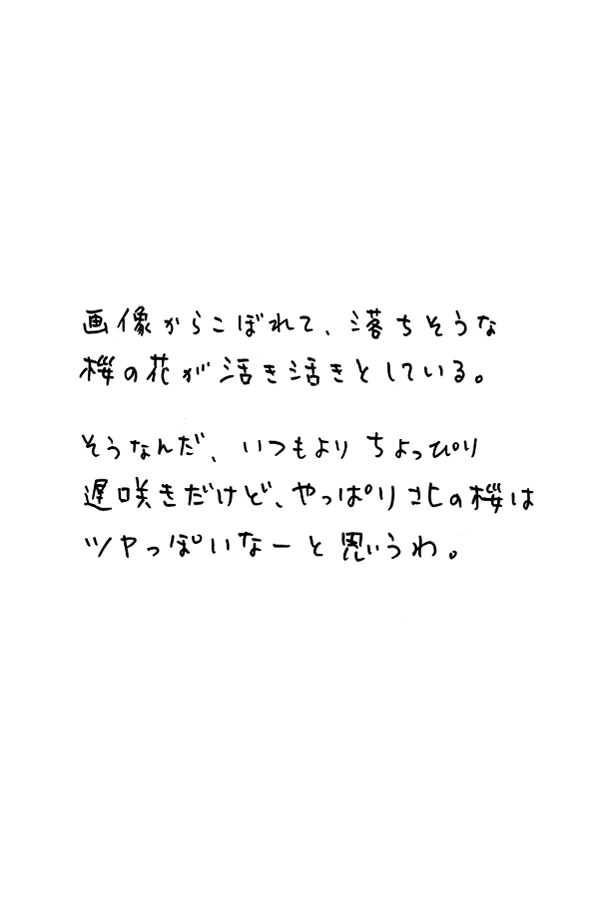 画像からこぼれて、落ちそうな
桜の花が活き活きとしている。
そうなんだ、いつもよりちょっぴり
遅咲きだけど、やっぱり北の桜は
ツヤっぽいなーと思いうわ。